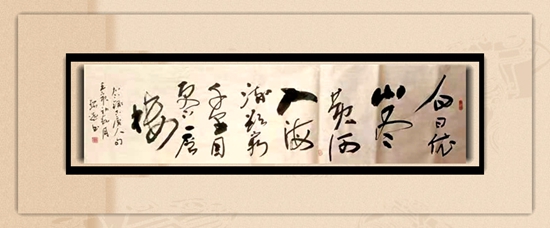 白日依
山尽
黄河
入海
流欲穷
千里目
更上一层
楼